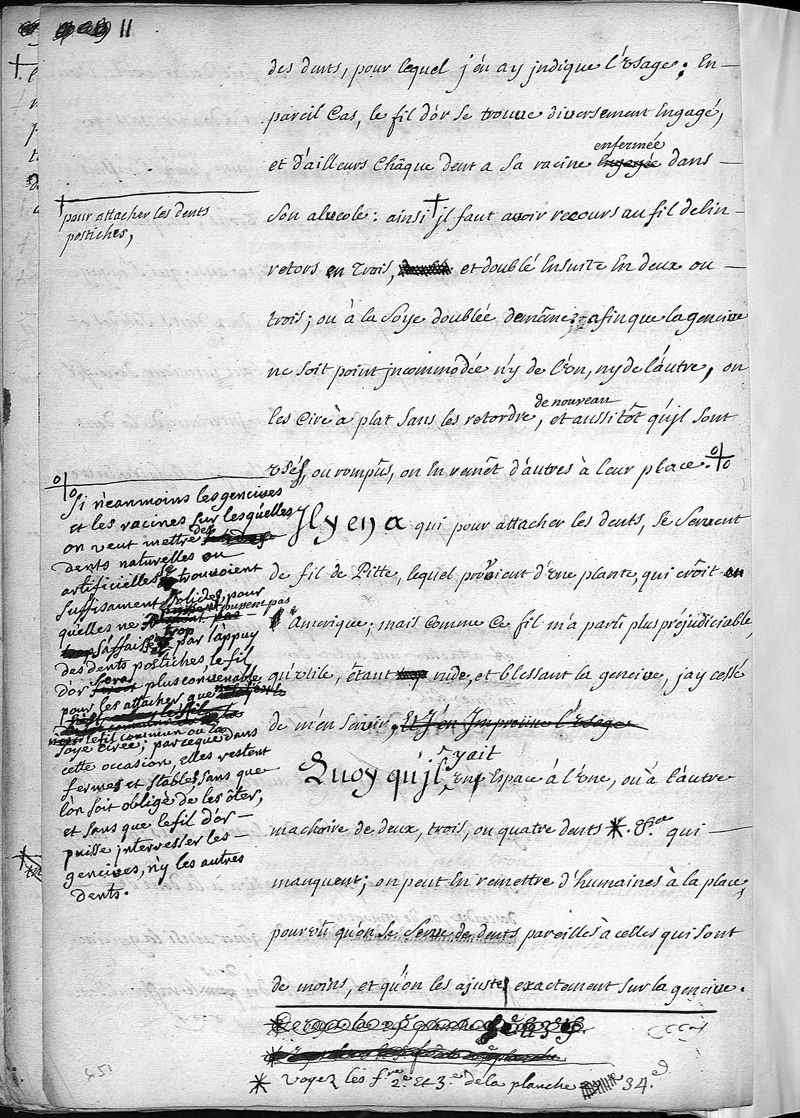 11
des dents, pour lequel j'en ay jndique l'Vsage; En
pareil Cas, le fil d'or se trouve diversement Engagé,
enfermée
et d'ailleurs Châque dent a sa racine Engagée dans
son alvéole: ainsi jl faut avoir recours au fil de lin
retors en trois, et doublé Ensuite En deux ou
trois; ou à la soye doublée de mâne; afin que la gencive
ne soit point jncommodée n'y de l'ûn, ny de lâutre, on
de nouveau
les Cire à plat sans les retordre, et aussitôt qu'jl sont
Vsés, ou rompûs, on En remêt d'autres à leur place.
Jl y en a qui pour attacher les dents, se servent
de fil de Pitte, lequel provient d'Vne plante, qui croît en
Amerique; mais Comme Ce fil m'a parû plus préjudiciable,
qu'vtile, étant rude, et blessant la gencive, j'ay cessé
de m'en servir, Et J'en Improuve l'Vsage
y ait
Quoy qu'jl Vne Espace à l'Vne, ou à l'autre
machoire de deux, trois, ou quatre dents qui
manquent; on peut En remettre d'humaines à la place,
pourvû qu'on se serve de dents pareilles à celles qui sont
de moins, et qu'on les ajuste exactement sur la gencive.
voyez les f.re 2.e et 3.e de la planche 34.e
pour attacher les dents
postiches,
Si n'eanmoins les gencives
et les racines sur lesquelles
on veut mettre des
dents naturelles ou
artificielles se trouvoient
suffisament solides, pour
qu'elles ne pussent pas
s'affaisser trop par l'appuy
des dents postiches, le fil
d'or sera plus convenable
pour les attacher, que
le fil commun ou la
soye cirée; parceque dans
cette occasion, elles restent
fermes et stables, sans que
l'on soit obligé de les ôter,
et sans que le fil d'or
puisse interesser les
gencives, n'y les autres
dents.